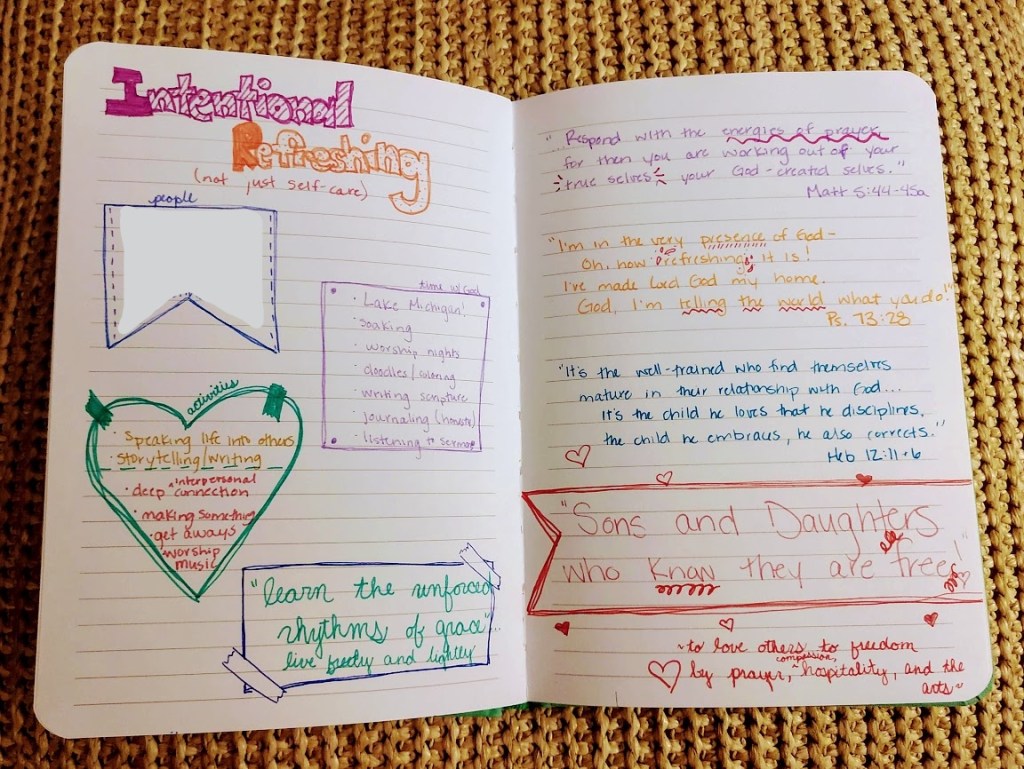 Intentional
Refreshing
(not just self-care)
people
time w/ God
· Lake Michigan!
· soaking
· worship nights
· doodles/coloring
· writing scripture
· journaling (honest)
· listening to sermons
activities
· speaking life into others
· storytelling/writing
interpersonal
· deep ^ connection
· making something
· get aways
· worship
music
"learn the unforced
rhythms of grace"...
live freely and lightly
"...Respond with the energies of prayer,
for then you are working out of your
true selves, your God-created selves."
Matt 5:44-45a
"I'm in the very presence of God-
Oh, how refreshing it is!
I've made Lord God my home.
God, I'm telling the world what you do!"
Ps. 73:28
"It's the well-trained who find themselves
mature in their relationship with God...
It's the child he loves that he disciplines,
the child he embraces, he also corrects."
Heb 12:11+6
"Sons and Daughters
who know they are free!"
~to love others to freedom
compassion,
by prayer, ^ hospitality, and the
arts~